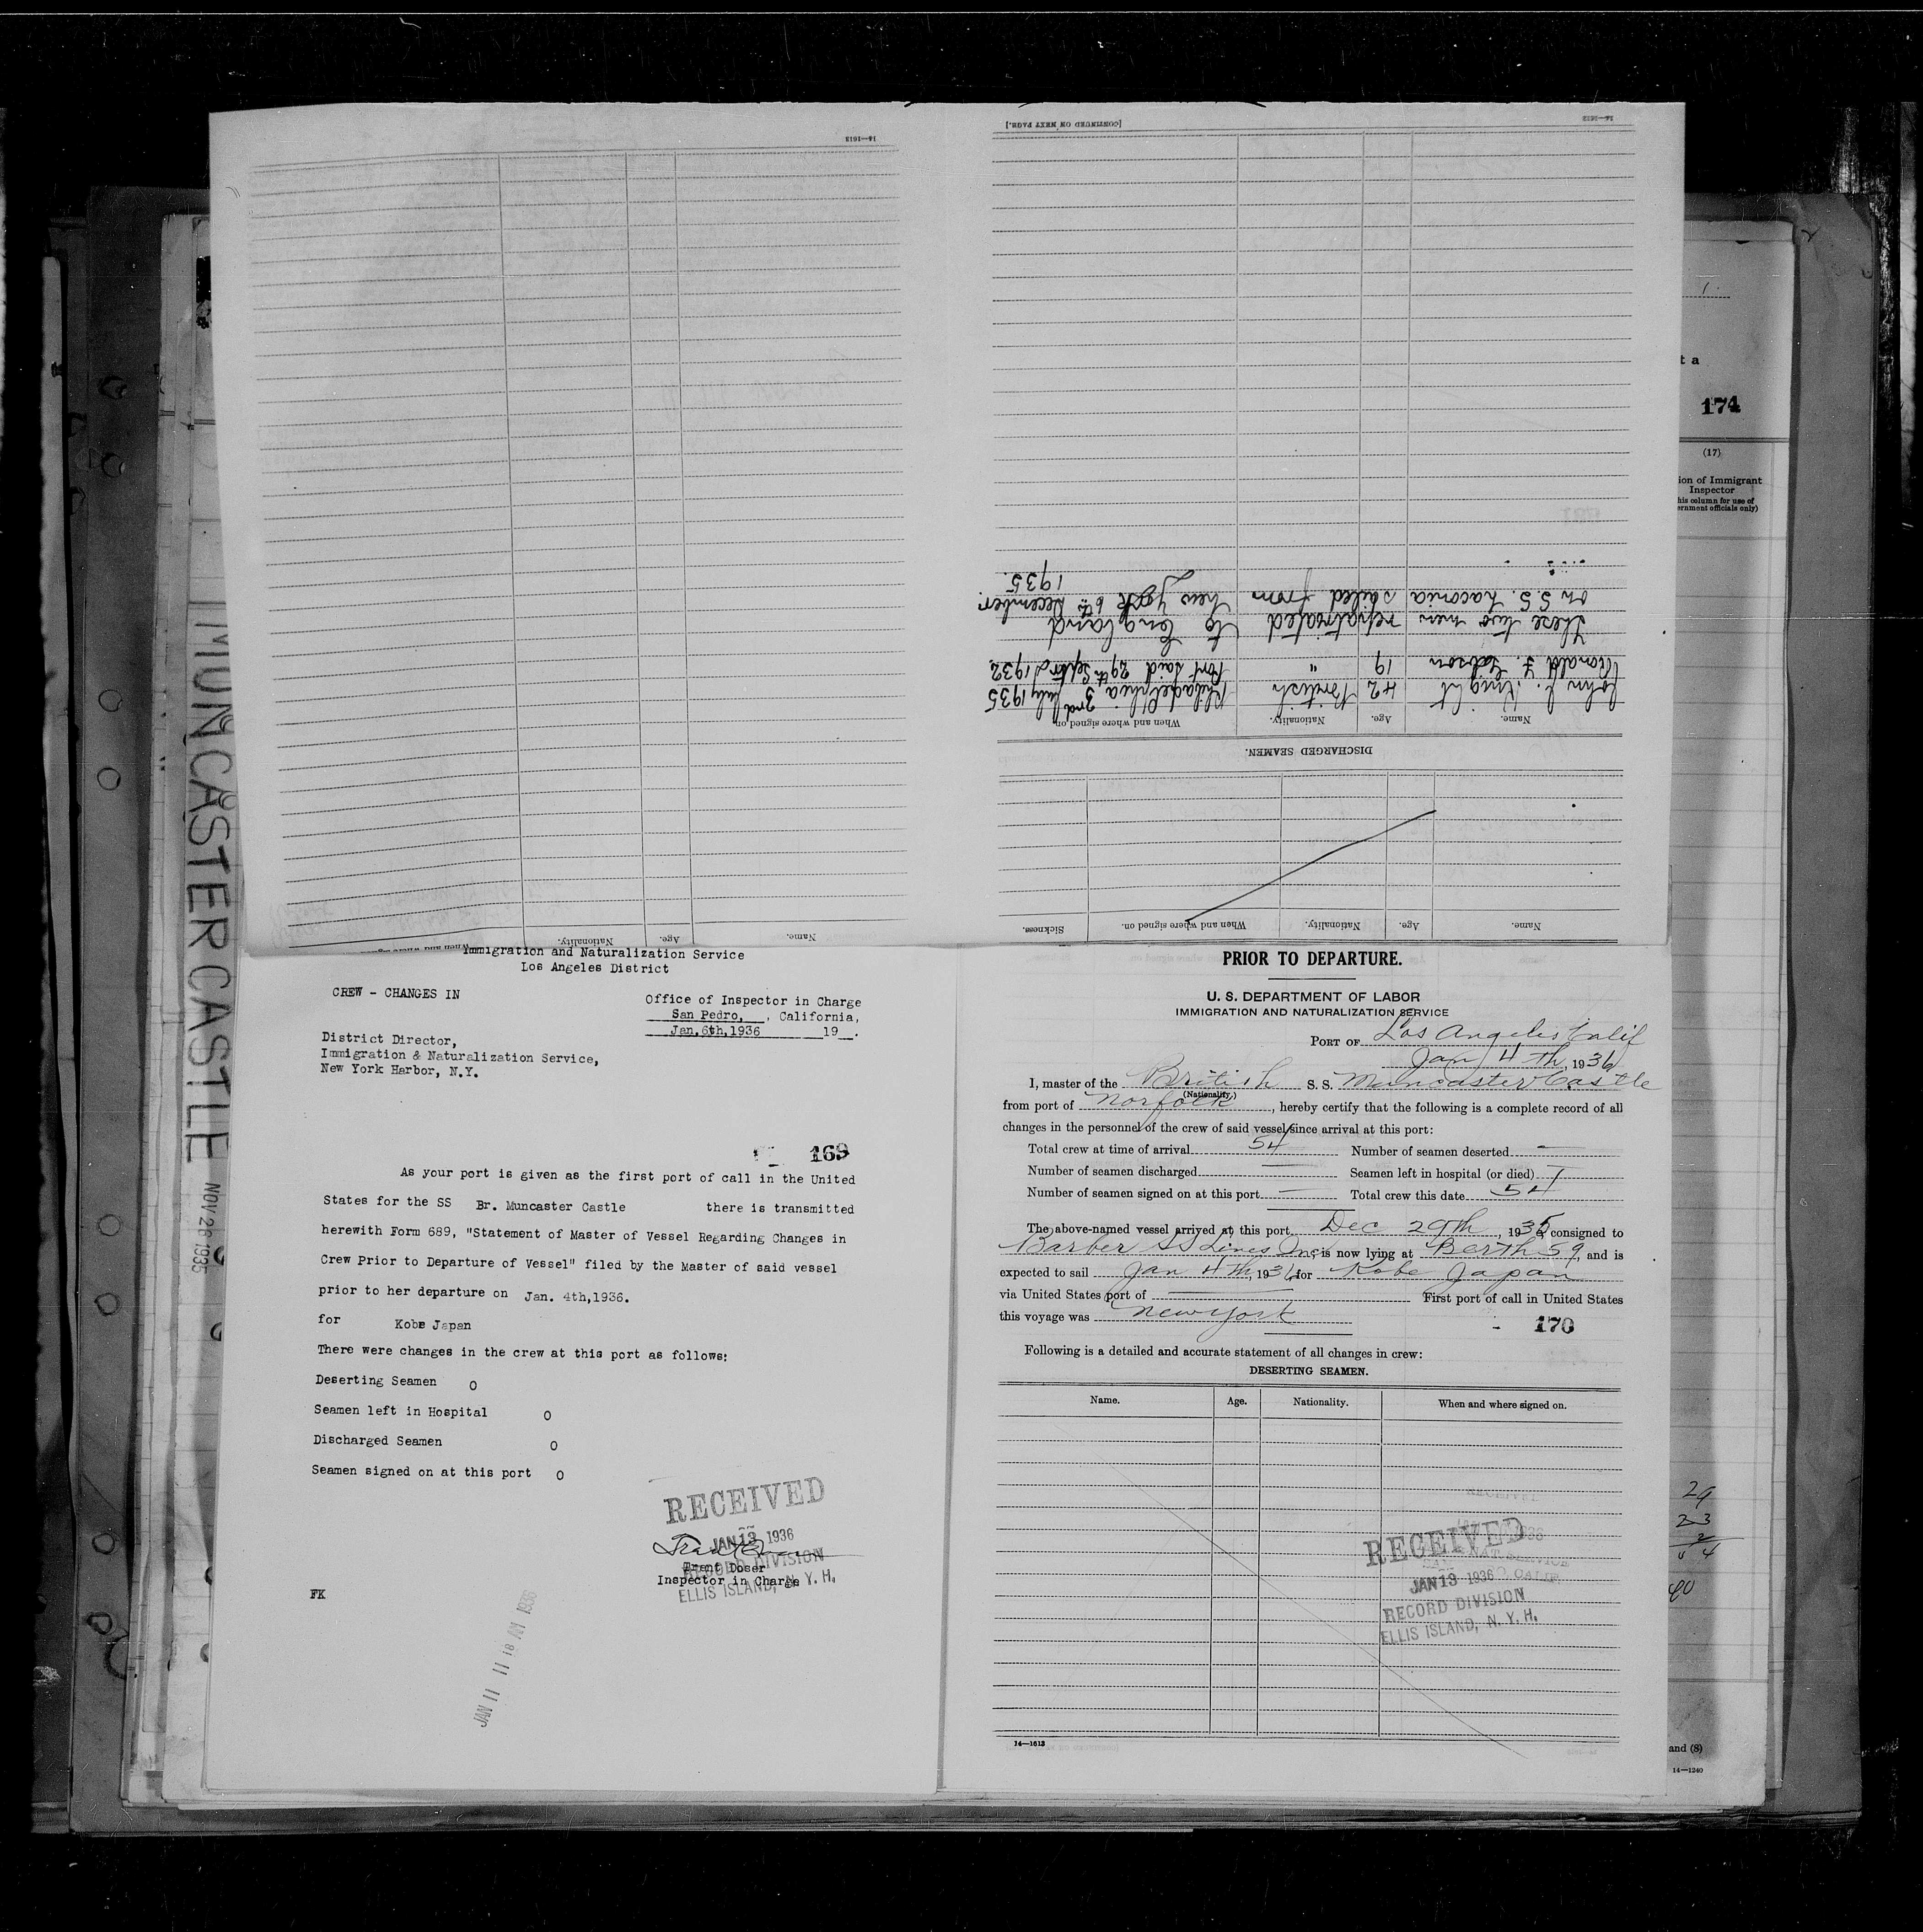 14—1613
When and where signed on.
Nationality.
Age.
Name.
[CONTINUED ON NEXT PAGE.]
14—1613
Name.
Age.
Nationality.
When and where signed on.
Sickness.
DISCHARGED SEAMEN.
Name. Age. Nationality. When and where signed on.
John J. Knight 42 British Philadelphia 3rd July 1935
Ronald F. 19 " Port Said 29th Septr 1932
These two men repatriated to England
on S.S. Laconia sailed from New York 6th December.
1935.
Immigration and Naturalization Service
Los Angeles District
CREW - CHANGES IN
Office of Inspector in Charge
San Pedro, , California,
Jan.6th,1936 19 .
District Director,
Immigration & Naturalization Service,
New York Harbor, N.Y.
169
As your port is given as the first port of call in the United
States for the SS Br. Muncaster Castle there is transmitted
herewith Form 689, "Statement of Master of Vessel Regarding Changes in
Crew Prior to Departure of Vessel" filed by the Master of said vessel
prior to her departure on Jan. 4th,1936.
for Kobe Japan
There were changes in the crew at this port as follows:
Deserting Seamen 0
Seamen left in Hospital 0
Discharged Seamen 0
Seamen signed on at this port 0
RECEIVED
JAN 13 1936
RECORD DIVISION
ELLIS ISLAND, N. Y. H.
Trent Doser
Inspector in Charge
FK
JAN 11 11 18 AM 1936
PRIOR TO DEPARTURE.
U. S. DEPARTMENT OF LABOR
IMMIGRATION AND NATURALIZATION SERVICE
PORT OF Los Angeles Calif
Jan 4th, 1936
I, master of the British S. S. Muncaster Castle
(Nationality.)
from port of Norfolk, hereby certify that the following is a complete record of all
changes in the personnel of the crew of said vessel since arrival at this port:
Total crew at time of arrival 54 Number of seamen deserted —
Number of seamen discharged — Seamen left in hospital (or died)
Number of seamen signed on at this port — Total crew this date 54
The above-named vessel arrived at this port Dec 29th, 1935, consigned to
Barber SS Lines Inc, is now lying at Berth 59, and is
expected to sail Jan 4th, 1936, for Kobe Japan
via United States port of — First port of call in United States
this voyage was New York
170
Following is a detailed and accurate statement of all changes in crew:
DESERTING SEAMEN.
Name. Age. Nationality. When and where signed on.
RECEIVED
JAN 13 1936
RECORD DIVISION
ELLIS ISLAND, N. Y. H.
14—1613
MUNCASTER CASTLE NOV 26 1935
t a
174
(17)
ion of Immigrant
Inspector
his column for use of
ernment officials only)
29
23
2
54
and (8)
14—1240